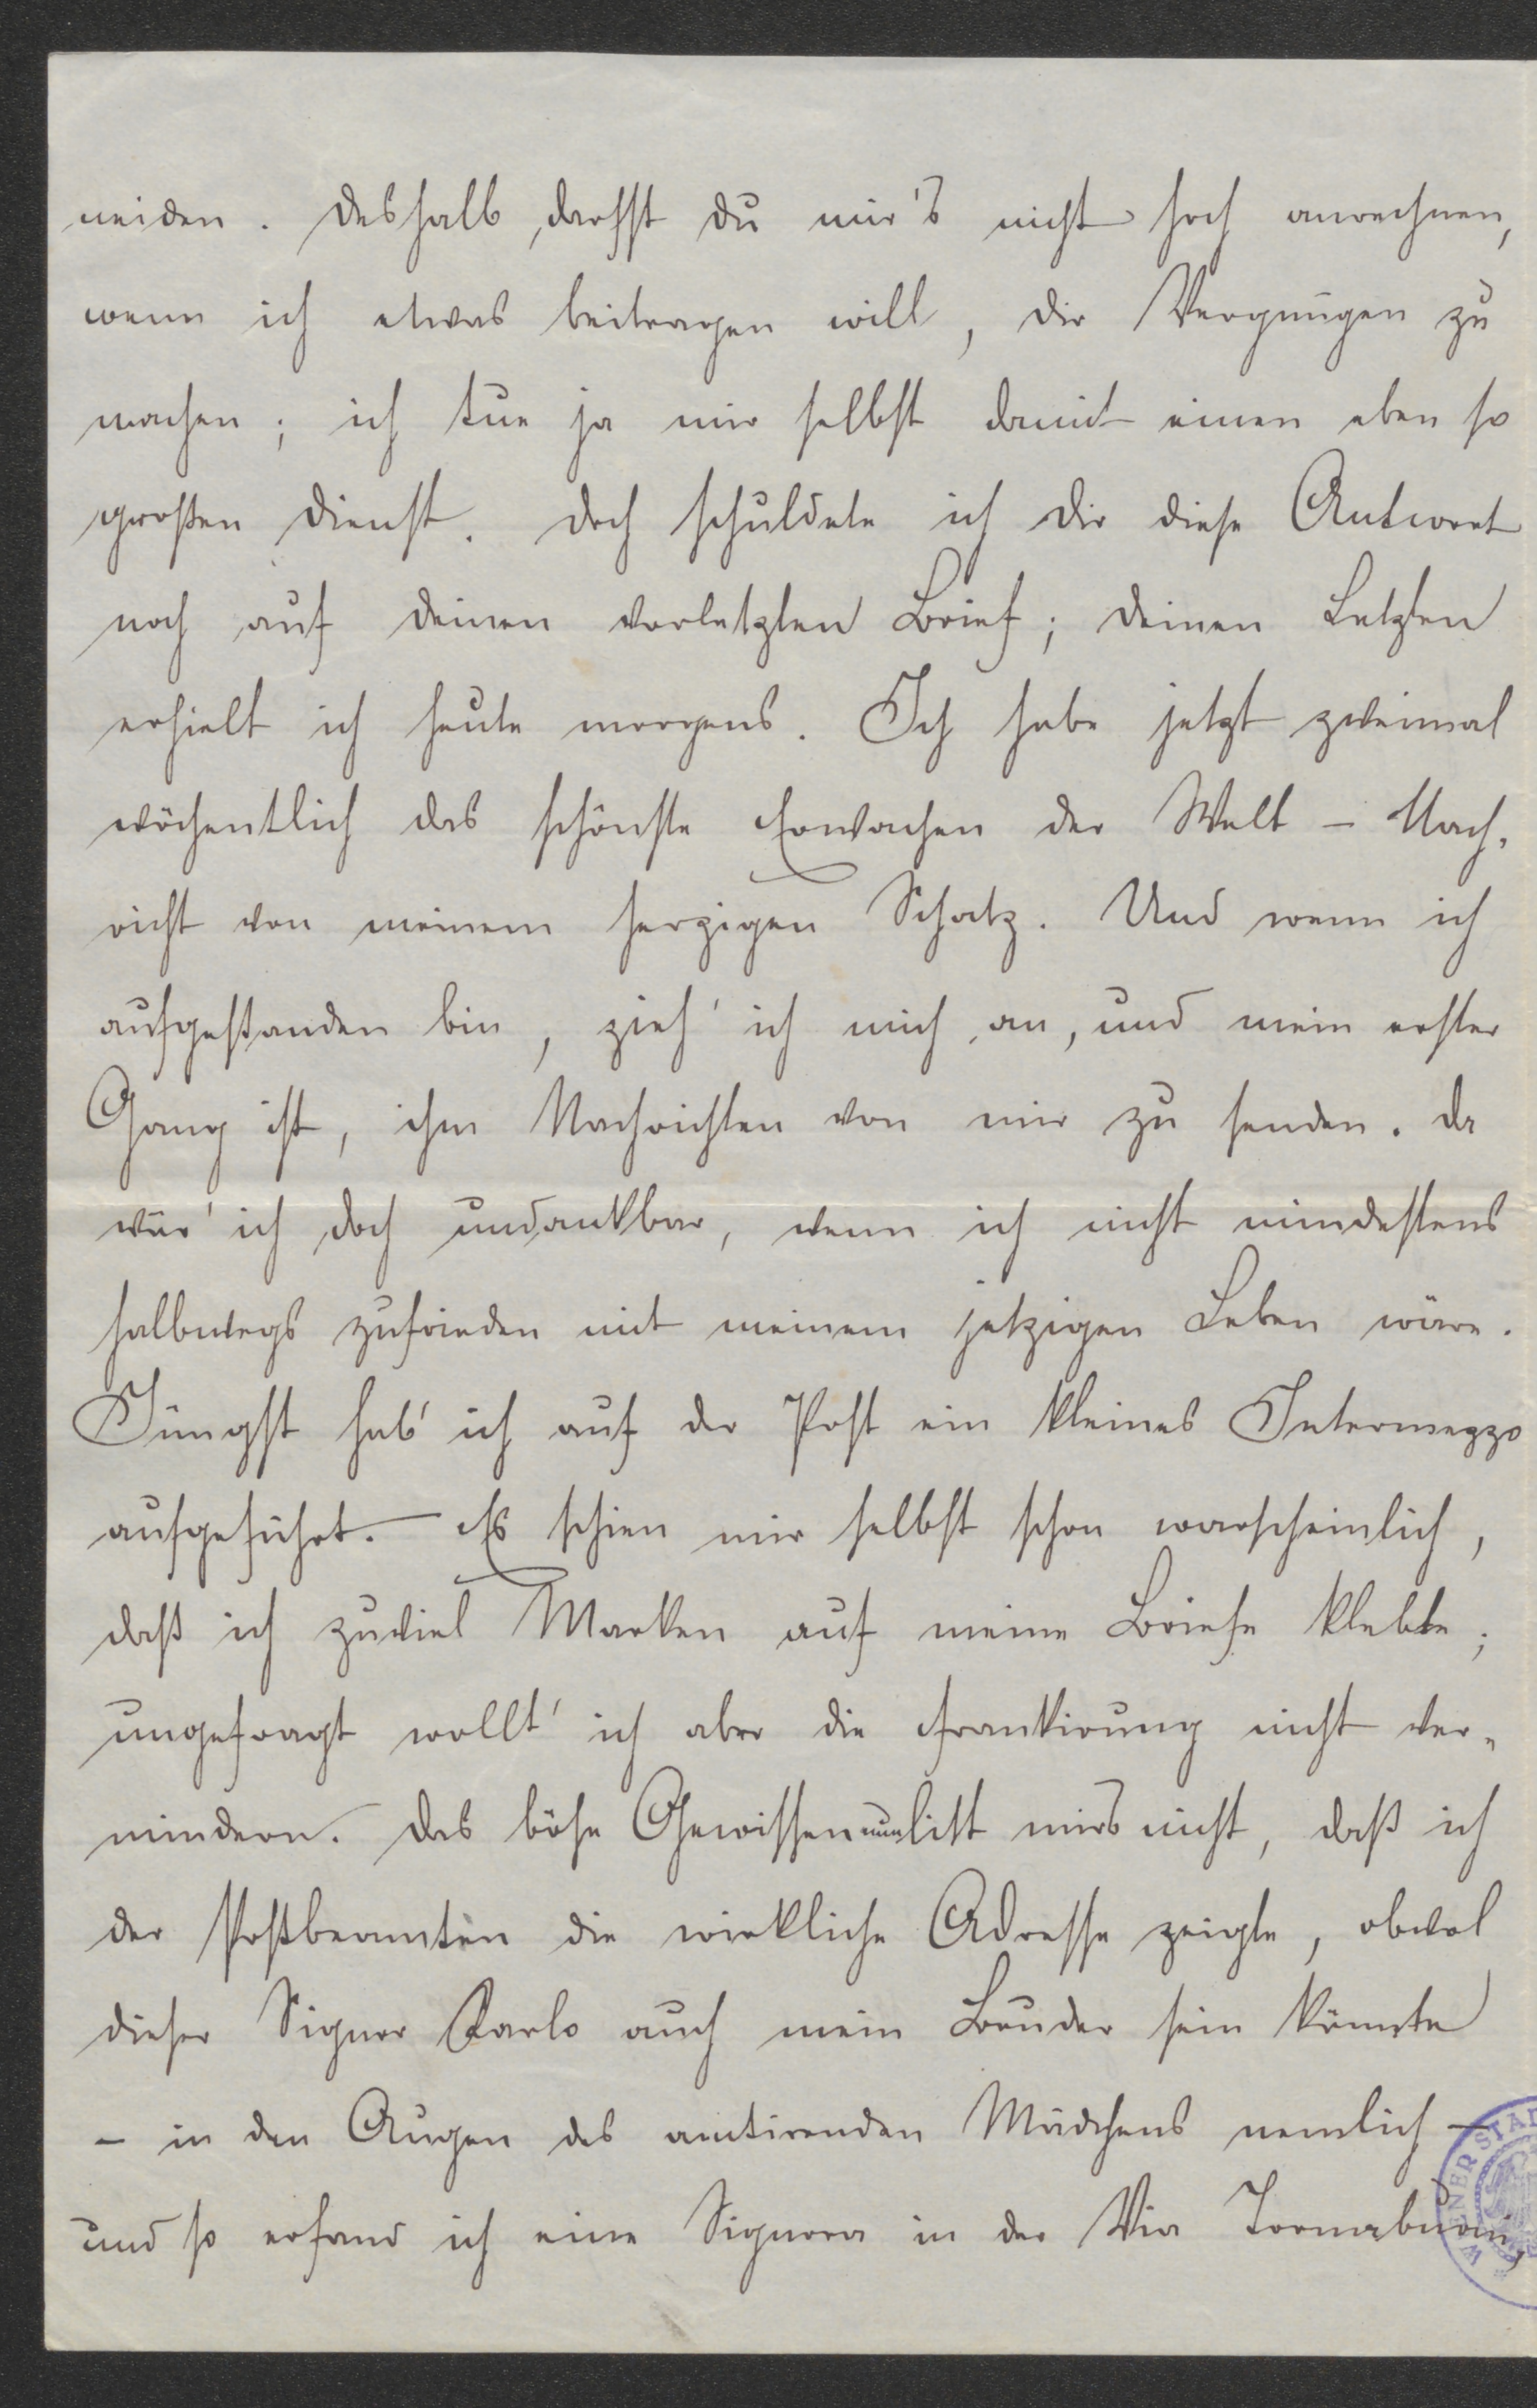 neiden. Deshalb darfst du mir's nicht hoch anrechnen,
wenn ich etwas beitragen will, dir Vergnügen zu
machen; ich tue ja mir selbst damit einen eben so
großen Dienst. Doch schuldete ich dir diese Antwort
noch auf deinen vorletzten Brief; deinen Letzten
erhielt ich heute morgens. Ich habe jetzt zweimal
wöchentlich das schönste Erwachen der Welt – Nach-
richt von meinem herzigen Schatz. Und wenn ich
aufgestanden bin, zieh' ich mich an, und mein erster
Gang ist, ihm Nachrichten von mir zu senden. Da
wär' ich doch undankbar, wenn ich nicht mindestens
halbwegs zufrieden mit meinem jetzigen Leben wäre.
Jüngst hab' ich auf der Post ein kleines Intermezzo
aufgeführt. – Es schien mir selbst schon warscheinlich,
daß ich zuviel Marken auf meine Briefe klebte;
ungefragt wollt' ich aber die Frankirung nicht ver-
mindern. Das böse Gewissen nun litt mirs nicht, daß ich
der Postbeamten die wirkliche Adresse zeigte, obwol
dieser Signor Carlo auch mein Bruder sein könnte
– in den Augen des amtirenden Mädchens nemlich –
und so erfand ich eine Signora in der Via Tornabuoni,
WIENER STA